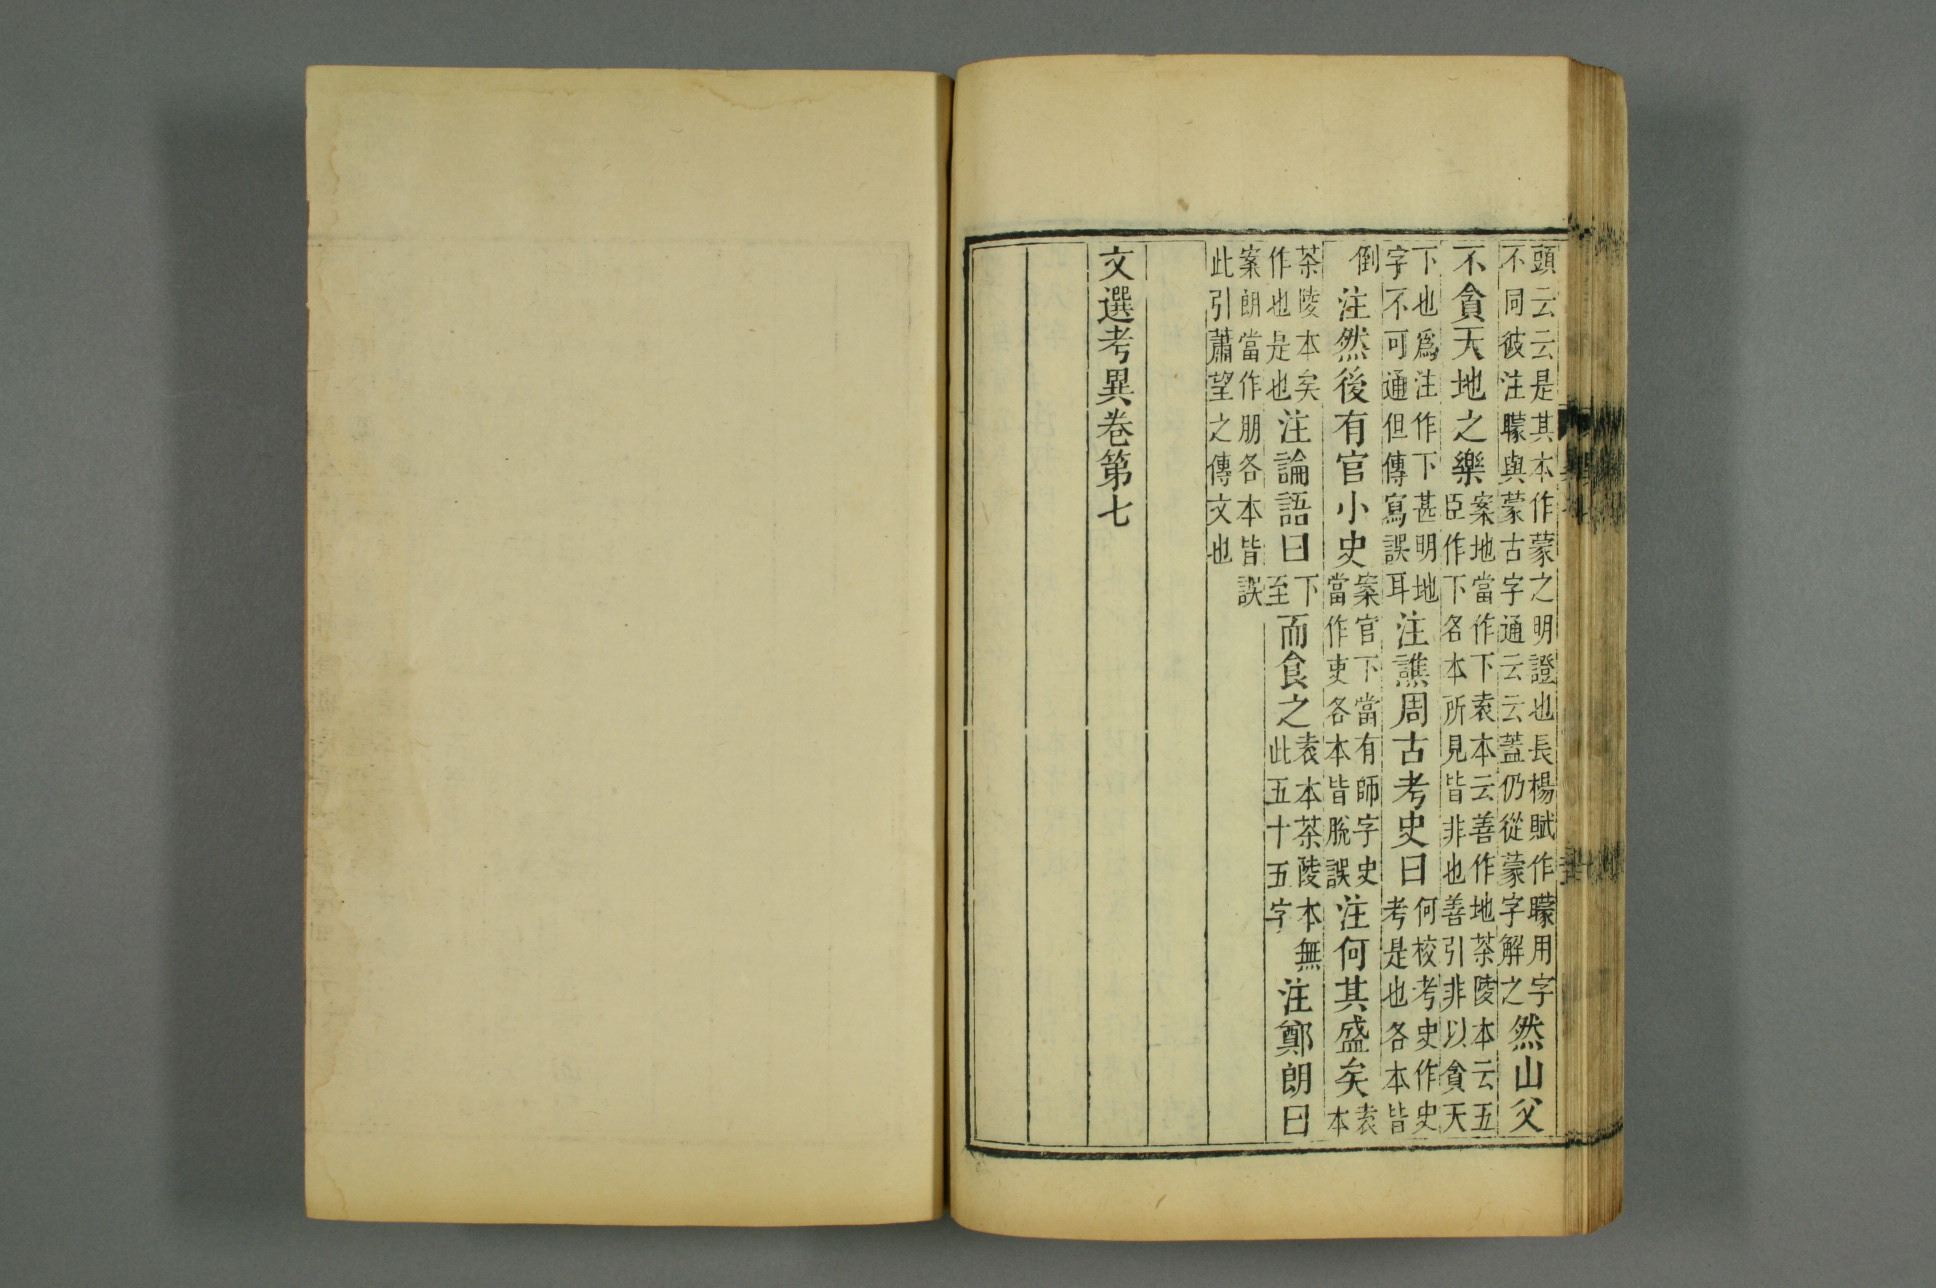 頭云云是其本作蒙之明證也長楊賦作矇用字不同彼注矇與蒙古字通云云蓋仍從蒙字解之然山父
不貪天地之樂案地當作下袁本云善作地茶陵本云五臣作下各本所見皆非也善引非以貪天
下也爲注作下甚明地字不可通但傳寫誤耳注譙周古考史曰何校考史作史考是也各本皆
倒注然後有官小史案官下當有師字史當作吏各本皆脫誤注何其盛矣袁本
茶陵本矣作也是也注論語曰下至而食之袁本茶陵本無此五十五字注鄭朗曰
案朗當作朋各本皆誤此引蕭望之傳文也
文選考異卷第七